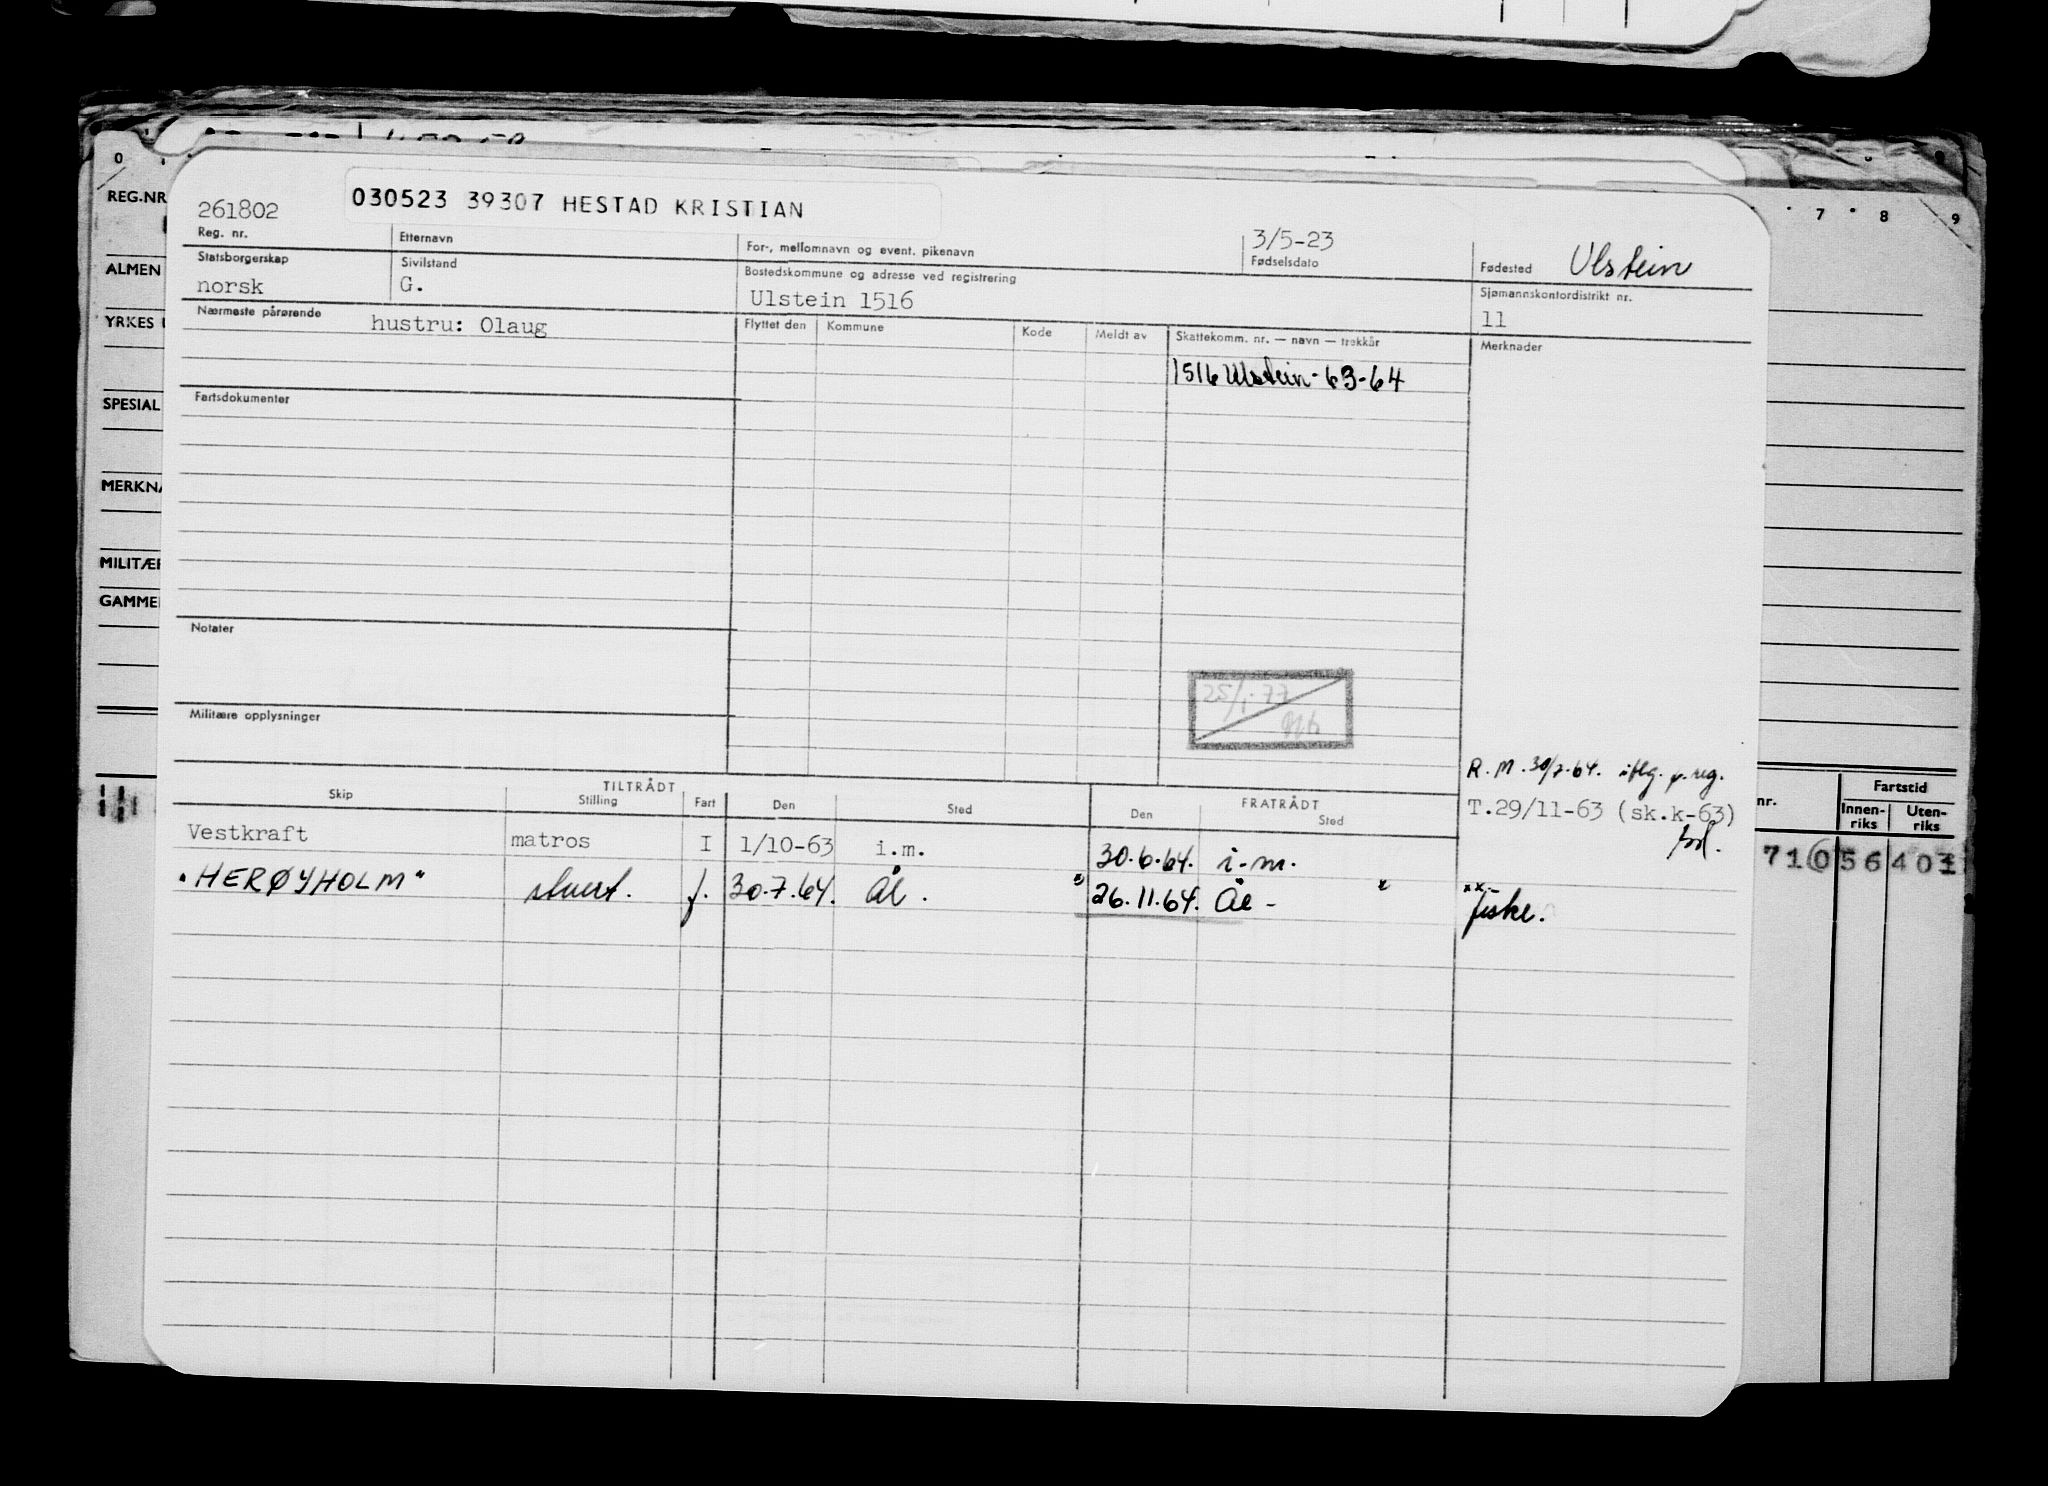 0 7 8 9
REG.NR
ALMEN
YRKES
SPESIAL
MERKNA
MILITÆR
GAMME
261802 030523 39307 HESTAD KRISTIAN 3/5-23 Ulstein
Reg. nr. Etternavn For-, mellomnavn og event. pikenavn Fødselsdato Fødested
Statsborgerskap Sivilstand Bostedskommune og adresse ved registrering Sjømannskontordistrikt nr.
norsk G. Ulstein 1516 11
Nærmeste pårørende hustru: Olaug Flyttet den Kommune Kode Meldt av Skattekomm. nr. — navn — trekkår Merknader
1516 Ulstein - 63-64
Fartsdokumenter
Notater
25/1-77
Militære opplysninger
R.M. 30/7-64. iflg. p. reg.
T.29/11-63 (sk.k-63)
TILTRÅDT FRATRÅDT
Skip Stilling Fart Den Sted Den Sted
Vestkraft matros I 1/10-63 i.m. 30.6.64. i.m.
"HERØYHOLM" stuert. f. 30.7.64. Ål. " 26.11.64. Ål - " fiske.
nr. Fartstid
Innen-riks Uten-riks
710 56 401